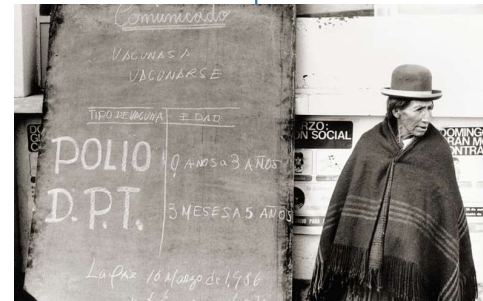 Comunicado
VACUNASA
VACUNARSE
TIPO DE VACUNA EDAD
POLIO 0 AÑOS a 3 AÑOS
D.P.T. 3 MESES A 5 AÑOS
La Paz 10 Marzo de 1,986
RZO:
N SOCIAL
DOMINGO
RAN